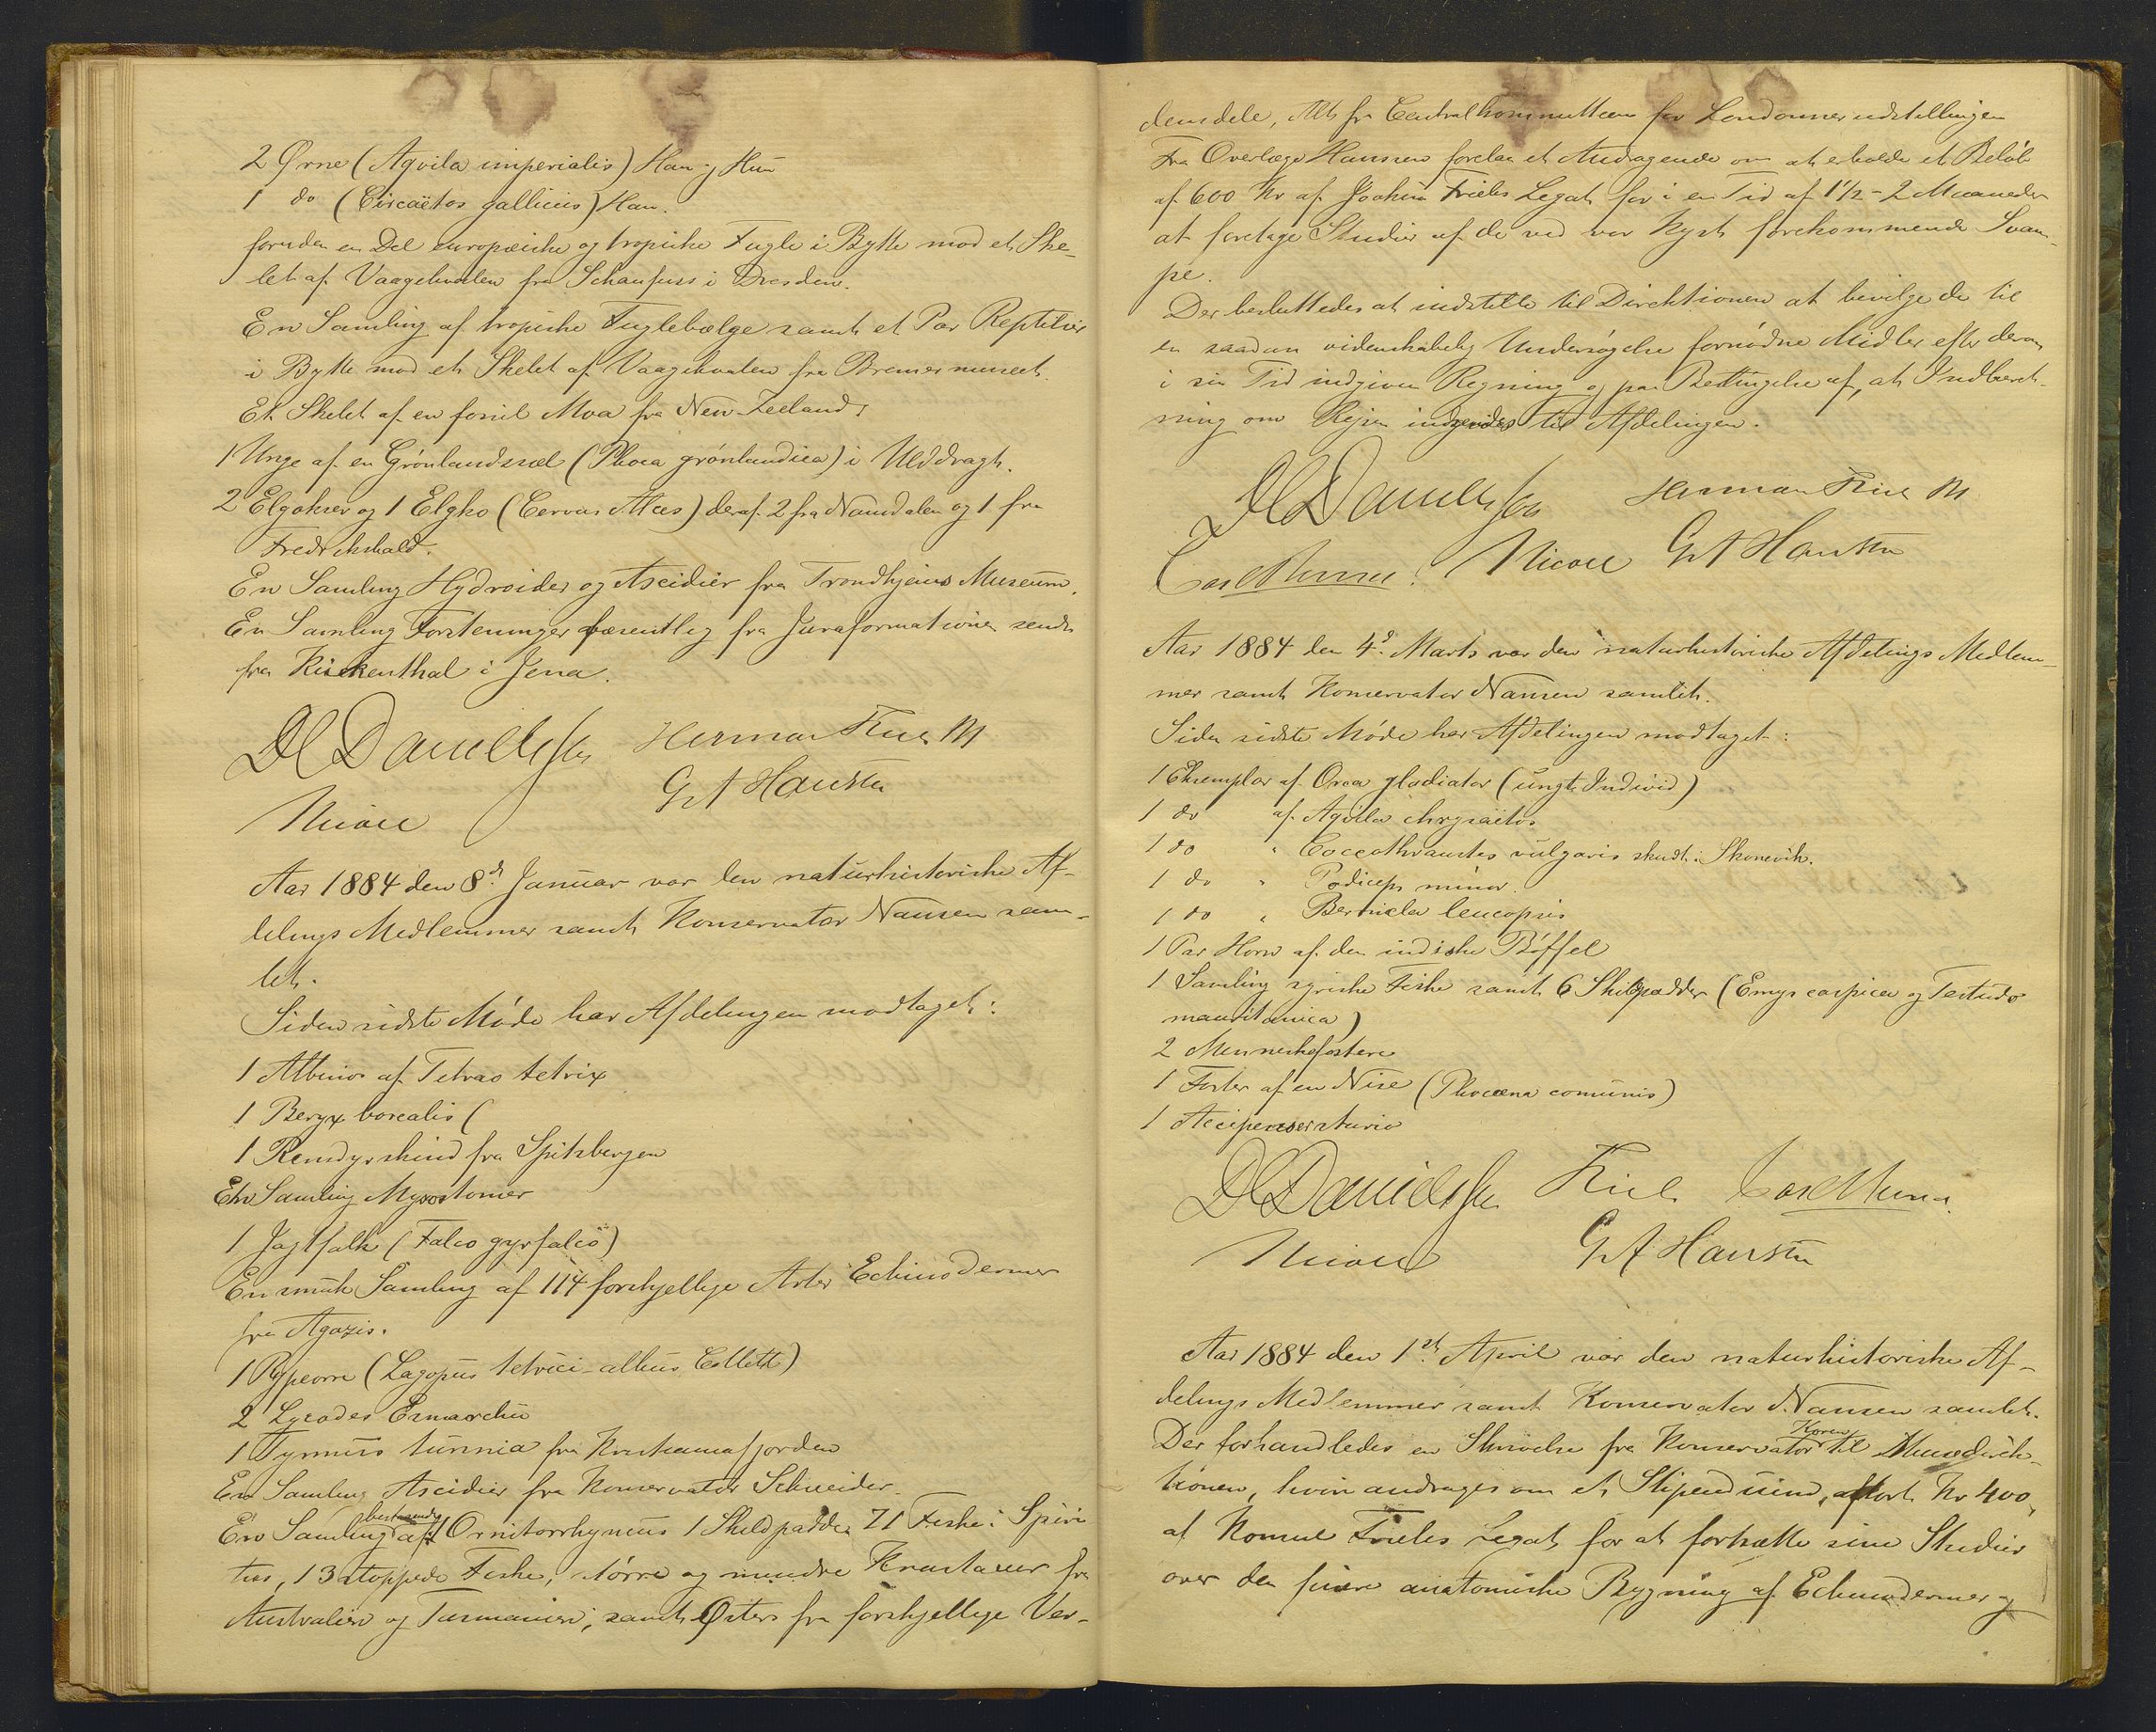 2 Ørne (Aqvila imperialis) Han og Hun
1 do (Circaëtos gallicus) Han.
foruden en Del europæiske og tropiske Fugle i Bytte mod et Ske-
let af Vaagehvalen fra Schaufuss i Dresden.
En Samling af tropiske Fuglebælge samt et Par Reptilier
i Bytte mod et Skelet af Vaagehvalen fra Bremermuseet.
Et Skelet af en fossil Moa fra New-Zeeland.
1 Unge af en Grönlandssæl (Phoca grönlandica) i Ulddragt.
2 Elgoxer og 1 Elgko (Cervus Alces) deraf 2 fra Namdalen og 1 fra
Fredrikshald.
En Samling Hydroider og Ascidier fra Trondhjems Museum.
En Samling Forsteninger væsentlig fra Juraformationen sendt
fra Kückenthal i Jena.
DC Danielssen Herman Friele M
G A Hansen
Nicoll
Aar 1884 den 8de Januar var den naturhistoriske Af-
delings Medlemmer samt Konservator Nansen sam-
let.
Siden sidste Möde har Afdelingen modtaget:
1 Albino af Tetrao tetrix
1 Beryx borealis (
1 Rensdyrskind fra Spitsbergen
En Samling Myzostomer
1 Jagtfalk (Falco gyrfalco)
En smuk Samling af 114 forskjellige Arter Echinodermer
fra Agazis.
1 Rypeorre (Lagopus tetrici-albus Collett)
2 Lycodes Esmarchii
1 Tynnus tunnia fra Kristianiafjorden
En Samling Ascidier fra Konservator Schneider.
bestaaende
En Samling af 1 Ornitorrhyncus 1 Skildpadde, 71 Fiske i Spiri
tus, 13 stoppede Fiske, större og mindre Krustaceer fra
Australien og Tasmanien, samt Østers fra forskjellige Ver-
densdele, Alt fra Centralkommitteen for Londonnerudstillingen
Fra Overlæge Hanssen forelaa et Andragende om at erholde et Beløb
af 600 Kr af Joakim Frieles Legat for i en Tid af 1 1/2 - 2 Maaneder
at foretage Studier af de ved vor Kyst forekommende Svam-
pe.
Der besluttedes at indstille til Direktionen at bevilge de til
en saadan videnskabelig Undersøgelse fornødne Midler efter derom
i sin Tid indgiven Regning og paa Betingelse af, at Indberet-
ning om Rejsen indsendes til Afdelingen.
DC Danielssen Herman Friele M
Nicoll G A Hansen
Aar 1884 den 4de Marts var den naturhistoriske Afdelings Medlem-
mer samt Konservator Nansen samlet.
Siden sidste Möde har Afdelingen modtaget:
1 Exemplar af Orca gladiator (ungt Individ)
1 do af Aqvila chrysaëtos
1 do " Coccothraustes vulgaris skudt i Skonevik.
1 do " Podiceps minor.
1 do " Bernicla leucopsis
1 Par Horn af den indiske Böffel
1 Samling syriske Fiske samt 6 Skildpadder (Emys caspica og Testudo
mauritanica)
2 Menneskefostere
1 Foster af en Nise (Phocæna comunis)
1 Accipenser sturio
DC Danielssen Friele
Nicoll G A Hansen
Aar 1884 den 1st April var den naturhistoriske Af-
delings Medlemmer samt Konservator Nansen samlet.
Koren
Der forhandledes en Skrivelse fra Konservator til Musedirek-
tionen, hvori andrages om et Stipendium, stort Kr 400,
af Konsul Frieles Legat for at fortsætte sine Studier
over den finere anatomiske Bygning af Echinodermer og